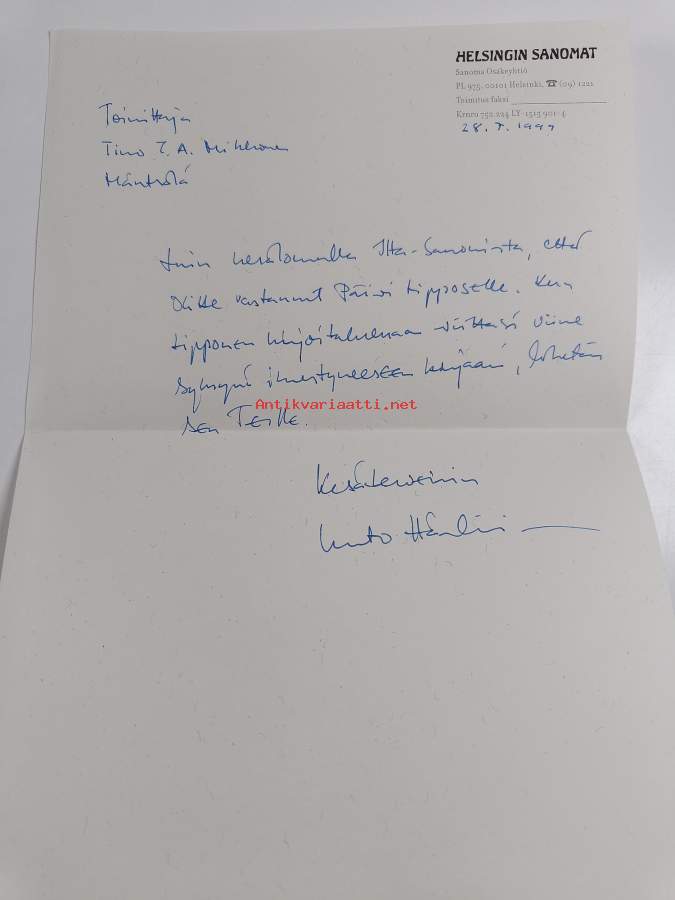 HELSINGIN SANOMAT
Sanoma Osakeyhtiö
PL 975, 00101 Helsinki, ☎ (09) 1221
Toimitus faksi
Krnro 752.224 LY-1515 901-4
28.7.1999
Toimittaja
Timo T. A. Mikkonen
Mäntsälä
Luin kesälomalla Ilta-Sanomista, että
Olitte vastannut Päivi Lipposelle. Kun
Lipponen kirjoituksessaan viittasi viime
syksynä ilmestyneeseen kirjaani, lähetän
sen Teille.
Antikvariaatti.net
Kesäterveisin
Unto Hämäläinen